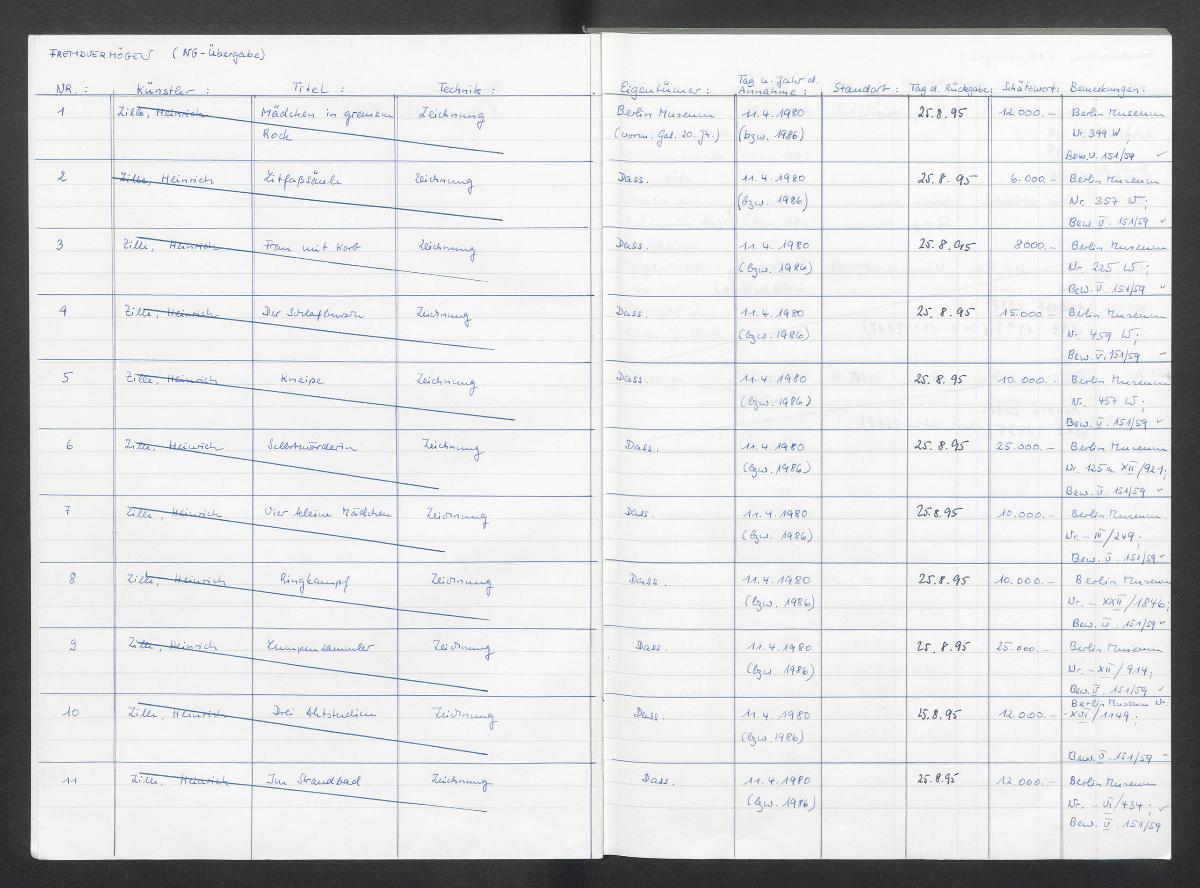 FREMDVERMÖGEN (NG-Übergabe)
NR.: Künstler: Titel: Technik: Eigentümer: Tag u. Jahr d. Annahme: Standort: Tag d. Rückgabe: Schätzwert: Bemerkungen:
1 Zille, Heinrich Mädchen in grauem Zeichnung Berlin Museum 11.4.1980 25.8.95 12.000.- Berlin Museum
Rock (vorm. Gal. 20. Jh.) (bzw. 1986) Nr. 399 W;
Bew. V. 151/59 ✓
2 Zille, Heinrich Litfaßsäule Zeichnung Dass. 11.4.1980 25.8.95 6.000.- Berlin Museum
(bzw. 1986) Nr. 357 W;
Bew V. 151/59 ✓
3 Zille, Heinrich Frau mit Korb Zeichnung Dass. 11.4.1980 25.8.95 8000.- Berlin Museum
(bzw. 1986) Nr. 225 W;
Bew. V. 151/59 ✓
4 Zille, Heinrich Der Schlafbursche Zeichnung Dass. 11.4.1980 25.8.95 15.000.- Berlin Museum
(bzw. 1986) Nr. 459 W;
Bew. V. 151/59 ✓
5 Zille, Heinrich Kneipe Zeichnung Dass. 11.4.1980 25.8.95 10.000.- Berlin Museum
(bzw. 1986) Nr. 457 W;
Bew. V. 151/59 ✓
6 Zille, Heinrich Selbstmörderin Zeichnung Dass. 11.4.1980 25.8.95 25.000.- Berlin Museum
(bzw. 1986) Nr. 125a XII/921;
Bew. V. 151/59 ✓
7 Zille, Heinrich Vier kleine Mädchen Zeichnung Dass. 11.4.1980 25.8.95 10.000.- Berlin Museum
(bzw. 1986) Nr. - III/249;
Bew. V. 151/59 ✓
8 Zille, Heinrich Ringkampf Zeichnung Dass. 11.4.1980 25.8.95 10.000.- Berlin Museum
(bzw. 1986) Nr. - XXII/1846;
Bew. V. 151/59 ✓
9 Zille, Heinrich Lumpensammler Zeichnung Dass. 11.4.1980 25.8.95 25.000.- Berlin Museum
(bzw. 1986) Nr. - XII/914;
Bew. V. 151/59 ✓
10 Zille, Heinrich Drei Aktstudien Zeichnung Dass. 11.4.1980 25.8.95 12.000.- Berlin Museum Nr.
(bzw. 1986) - XVI/1149;
Bew. V. 151/59 ✓
11 Zille, Heinrich Im Strandbad Zeichnung Dass. 11.4.1980 25.8.95 12.000.- Berlin Museum
(bzw. 1986) Nr. - VI/434; ✓
Bew. V. 151/59